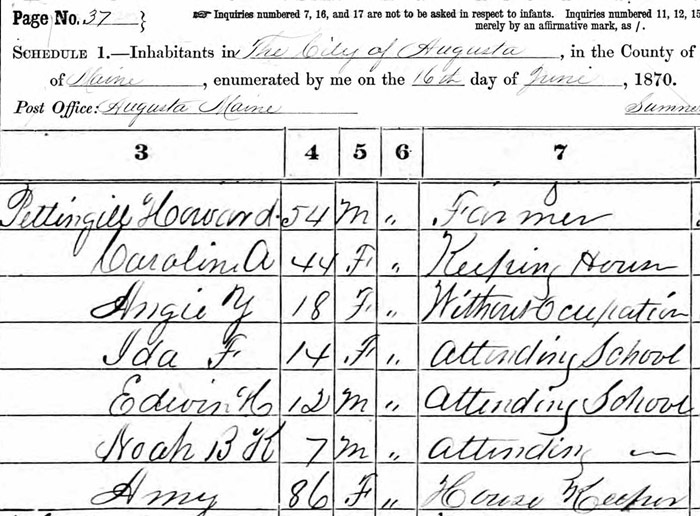 Page No. 37 } ☞ Inquiries numbered 7, 16, and 17 are not to be asked in respect to infants. Inquiries numbered 11, 12, 15
merely by an affirmative mark, as /.
SCHEDULE 1.—Inhabitants in The City of Augusta, in the County of
of Maine, enumerated by me on the 16th day of June, 1870.
Post Office: Augusta Maine Sumner
3 4 5 6 7
Pettingill Howard 54 M " Farmer
Caroline A 44 F " Keeping House
Angie Y 18 F " Without Ocupation
Ida F 14 F " Attending School
Edwin H 12 M " Attending School
Noah B K 7 M " Attending —
Amy 86 F " House Keeper